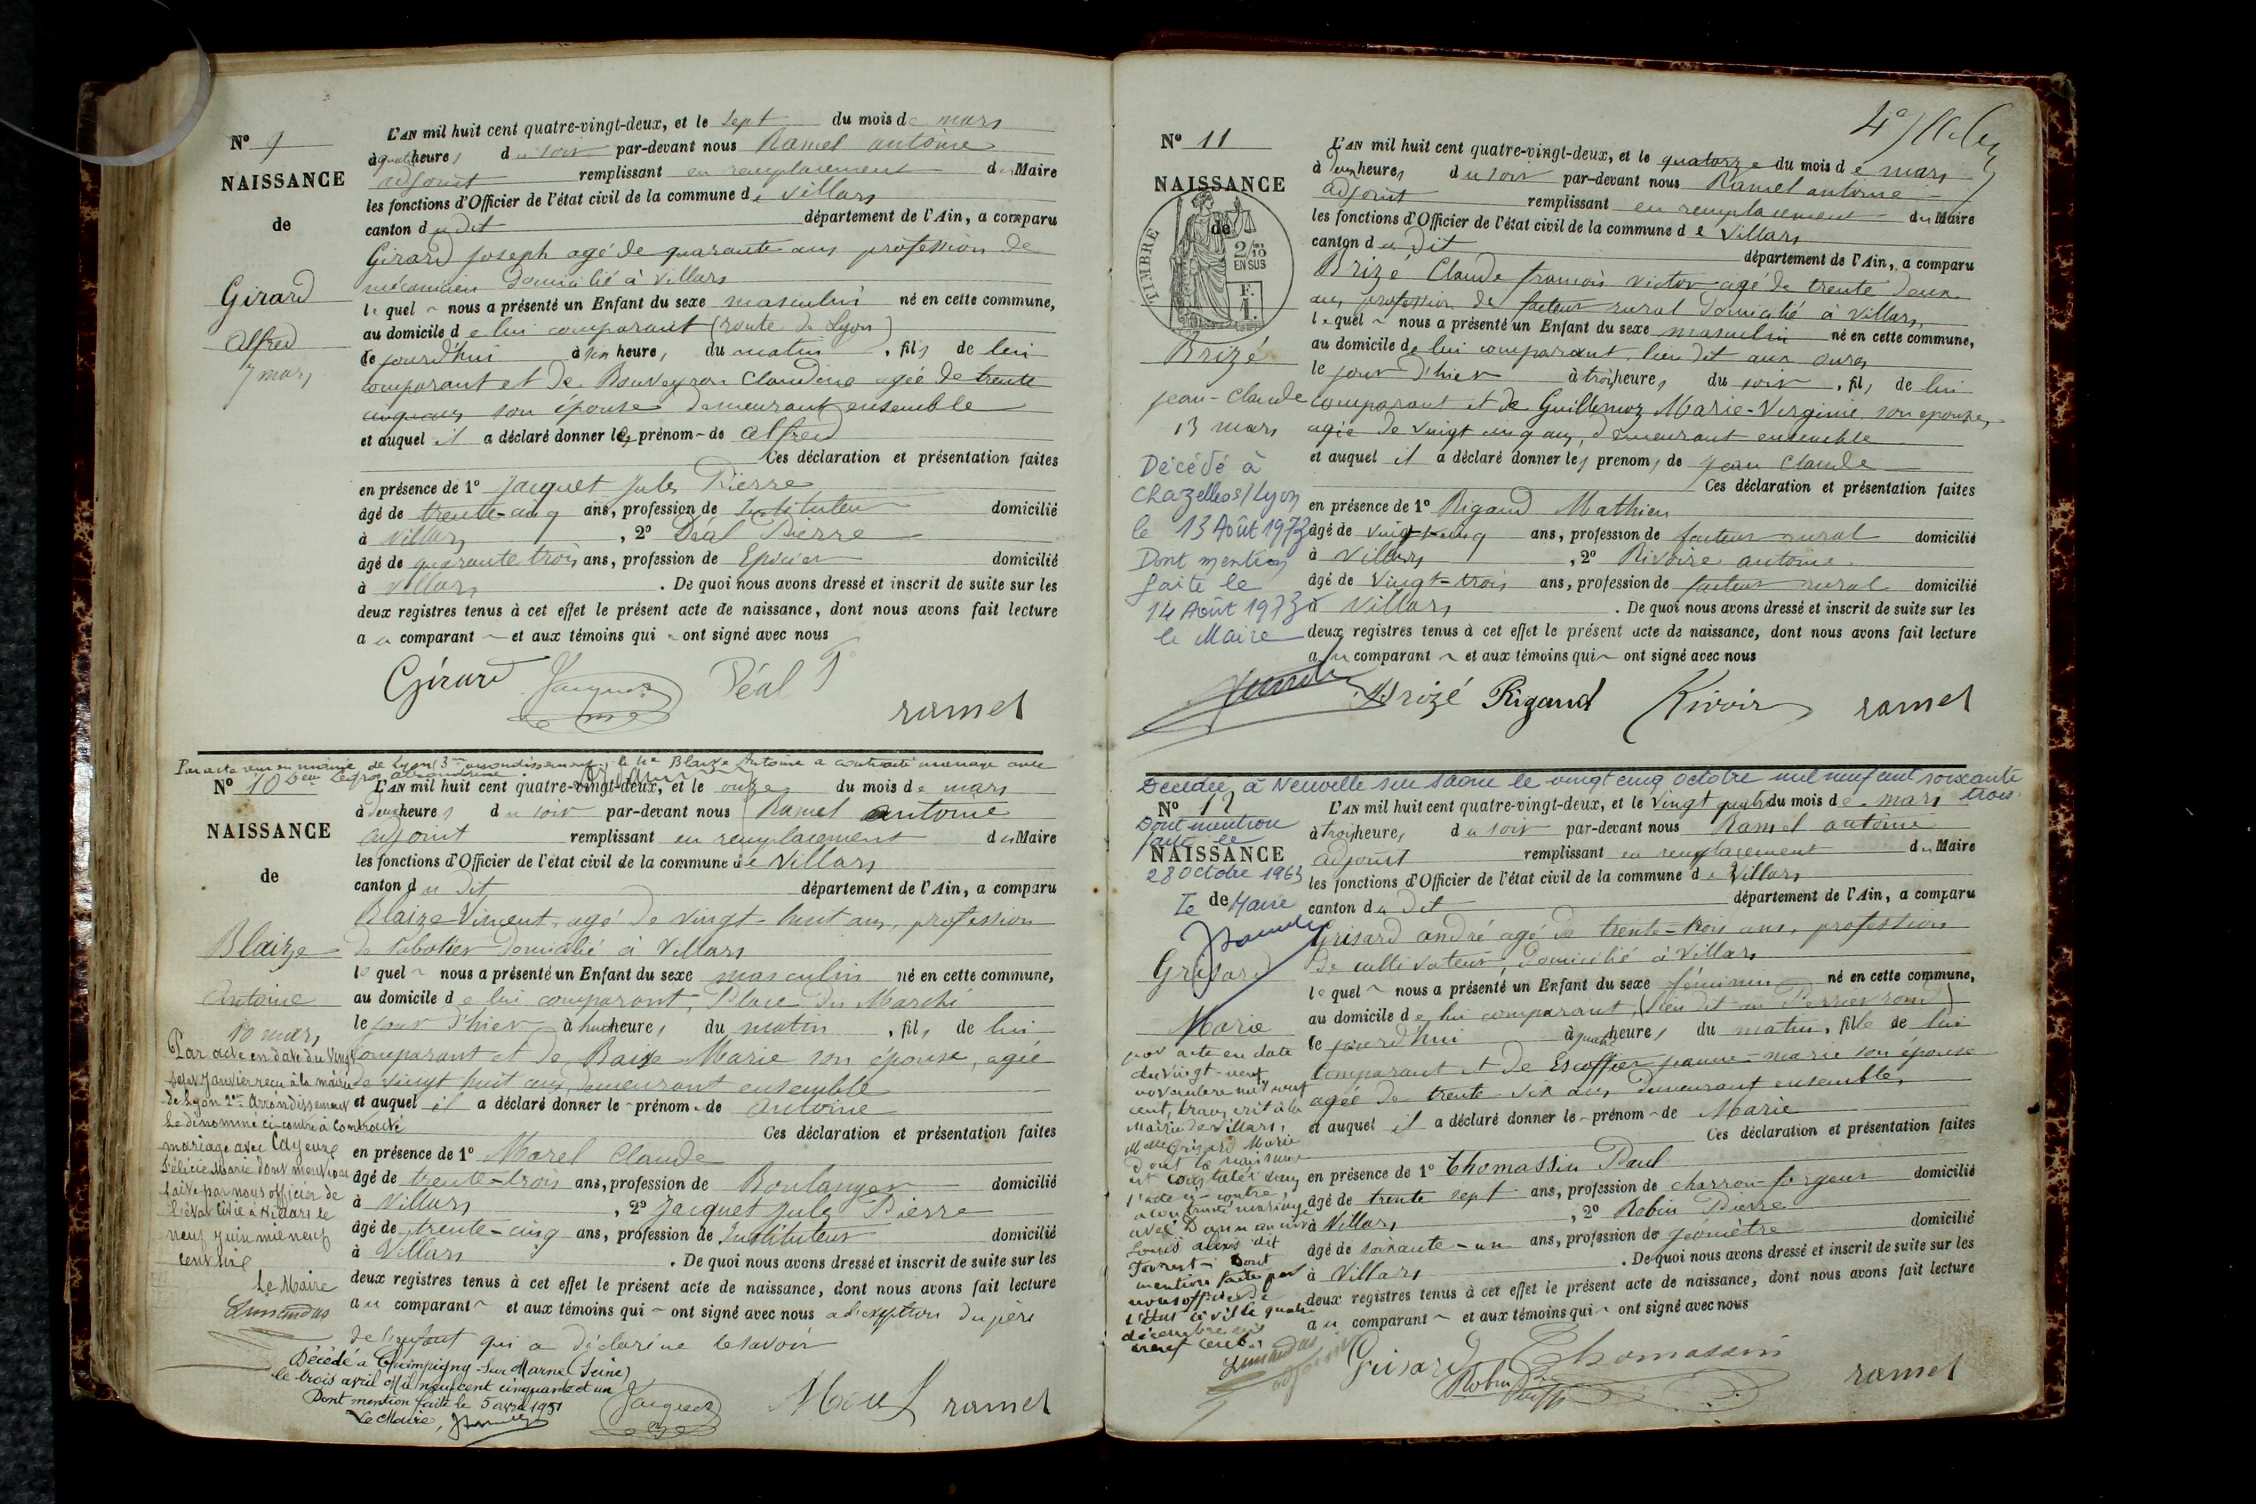 N° 9
NAISSANCE
de
Girard
Alfred
7 mars
L'AN mil huit cent quatre-vingt-deux, et le sept du mois de mars
à quatre heures du soir par-devant nous Ramel antoine
adjoint remplissant en remplacement du Maire
les fonctions d'Officier de l'état civil de la commune de Villars
canton du dit département de l'Ain, a comparu
Girard Joseph agé de quarante ans profession de
mécanicien Domicilié à Villars
lequel nous a présenté un Enfant du sexe masculin né en cette commune,
au domicile de lui comparant (route de Lyon)
le jourd'hui à heure, du matin, fils de lui
comparant et de Bouveyron Claudine agée de trente
cinq ans, son épouse demeurant ensemble
et auquel il a déclaré donner le prénom de Alfred
Ces déclaration et présentation faites
en présence de 1° Jacquet Jules Pierre
âgé de trente-cinq ans, profession de Instituteur domicilié
à Villars, 2° Déal Pierre
âgé de quarante trois ans, profession de Epicier domicilié
à Villars. De quoi nous avons dressé et inscrit de suite sur les
deux registres tenus à cet effet le présent acte de naissance, dont nous avons fait lecture
au comparant et aux témoins qui ont signé avec nous
Girard Jacquet Déal P. ramel
Par acte reçu en mairie de Lyon (3me arrondissement), le nommé Blaize Antoine a contracté mariage avec
N° 10
NAISSANCE
de
Blaize
Antoine
10 mars
Par acte en date du vingt
sept Janvier reçu à la mairie
de Lyon 2me Arrondissement
Le dénommé ci-contre à contracté
mariage avec Cayeux
Félicie Marie dont mention
faite par nous officier de
l'état civil à Villars le
neuf juin mil neuf
cent
Le Maire
L'AN mil huit cent quatre-vingt-deux, et le onze du mois de mars
à deux heures du soir par-devant nous Ramel antoine
adjoint remplissant en remplacement du Maire
les fonctions d'Officier de l'état civil de la commune de Villars
canton du dit département de l'Ain, a comparu
Blaize Vincent, agé de vingt-huit ans, profession
de sabotier Domicilié à Villars
lequel nous a présenté un Enfant du sexe masculin né en cette commune,
au domicile de lui comparant, Place du Marché
le jour d'hier à huit heures, du matin, fils de lui
comparant et de Baise Marie son épouse, agée
de vingt huit ans, demeurant ensemble
et auquel il a déclaré donner le prénom de antoine
Ces déclaration et présentation faites
en présence de 1° Morel Claude
âgé de trente-trois ans, profession de Boulanger domicilié
à Villars, 2° Jacquet Jules Pierre
âgé de trente-cinq ans, profession de Instituteur domicilié
à Villars. De quoi nous avons dressé et inscrit de suite sur les
deux registres tenus à cet effet le présent acte de naissance, dont nous avons fait lecture
au comparant et aux témoins qui ont signé avec nous à l'exception du père
de l'enfant qui a déclaré ne le savoir
Décédé à Champigny-sur-Marne (Seine)
le trois avril mil neuf cent cinquante et un
Dont mention faite le 5 avril 1951
Le Maire,
Jacquet Morel ramel
4e
N° 11
NAISSANCE
de
TIMBRE
2/10
EN SUS
F.
1.
Brizé
Jean-Claude
13 mars
Décédé à
Chazelles s/ Lyon
le 13 Août 1973
Dont mention
faite le
14 Août 1973
le Maire
L'AN mil huit cent quatre-vingt-deux, et le quatorze du mois de mars
à deux heures, du soir par-devant nous Ramel antoine
adjoint remplissant en remplacement du Maire
les fonctions d'Officier de l'état civil de la commune de Villars
canton du dit département de l'Ain, a comparu
Brizé Claude françois Victor agé de trente deux
ans, profession de facteur rural Domicilié à Villars,
lequel nous a présenté un Enfant du sexe masculin né en cette commune,
au domicile de lui comparant, lieu dit aux
le jour d'hier à trois heures, du soir, fils de lui
comparant et de Guillemoz Marie-Virginie son épouse,
agée de vingt cinq ans, demeurant ensemble
et auquel il a déclaré donner les prénoms de Jean Claude
Ces déclaration et présentation faites
en présence de 1° Rigaud Mathieu
âgé de vingt-cinq ans, profession de facteur rural domicilié
à Villars, 2° Rivoire antoine
âgé de Vingt-trois ans, profession de facteur rural domicilié
à Villars. De quoi nous avons dressé et inscrit de suite sur les
deux registres tenus à cet effet le présent acte de naissance, dont nous avons fait lecture
au comparant et aux témoins qui ont signé avec nous
Brizé Rigaud Rivoire ramel
Décédée à Neuville sur Saône le vingt cinq octobre mil neuf cent soixante
trois
N° 12
Dont mention
faite le
NAISSANCE
28 octobre 1963
de
Le Maire
Grisard
Marie
par acte en date
du vingt-neuf
novembre mil neuf
cent, transcrit à la
Mairie de Villars,
Melle Grisard Marie
dont la naissance
est constatée dans
l'acte ci-contre,
a contracté mariage
avec
Louis dit
Dont
mention faite par
nous officier de
l'état civil le quatre
décembre mil
neuf cent.
L'AN mil huit cent quatre-vingt-deux, et le Vingt quatre du mois de mars
à trois heures, du soir par-devant nous Ramel antoine
adjoint remplissant en remplacement du Maire
les fonctions d'Officier de l'état civil de la commune de Villars
canton du dit département de l'Ain, a comparu
Grisard andré agé de trente-trois ans, profession
de cultivateur, Domicilié à Villars
lequel nous a présenté un Enfant du sexe féminin né en cette commune,
au domicile de lui comparant, (lieu dit au Perrier rond)
le jourd'hui à quatre heures du matin, fille de lui
comparant et de Escoffier jeanne-marie son épouse
agée de trente six ans, demeurant ensemble,
et auquel il a déclaré donner le prénom de Marie
Ces déclaration et présentation faites
en présence de 1° Thomassin Paul
âgé de trente sept ans, profession de charron-forgeur domicilié
à Villars, 2° Robin Pierre
âgé de soixante-un ans, profession de géomètre domicilié
à Villars. De quoi nous avons dressé et inscrit de suite sur les
deux registres tenus à cet effet le présent acte de naissance, dont nous avons fait lecture
au comparant et aux témoins qui ont signé avec nous
Grisard Thomassin Robin ramel